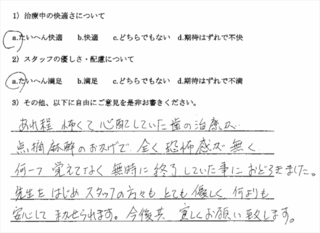 1）治療中の快適さについて
a.たいへん快適 b.快適 c.どちらでもない d.期待はずれで不快
2）スタッフの優しさ・配慮について
a.たいへん満足 b.満足 c.どちらでもない d.期待はずれで不満
3）その他、以下に自由にご意見を是非お書きください。
あれ程 怖くて 心配していた歯の治療が
点滴麻酔のおかげで 全く恐怖感が無く
何一つ覚えてなく 無時に終了していた事におどろきました。
先生をはじめ スタッフの方々も とても優しく 何よりも
安心して まかせられます。今後共 宜しくお願い致します。